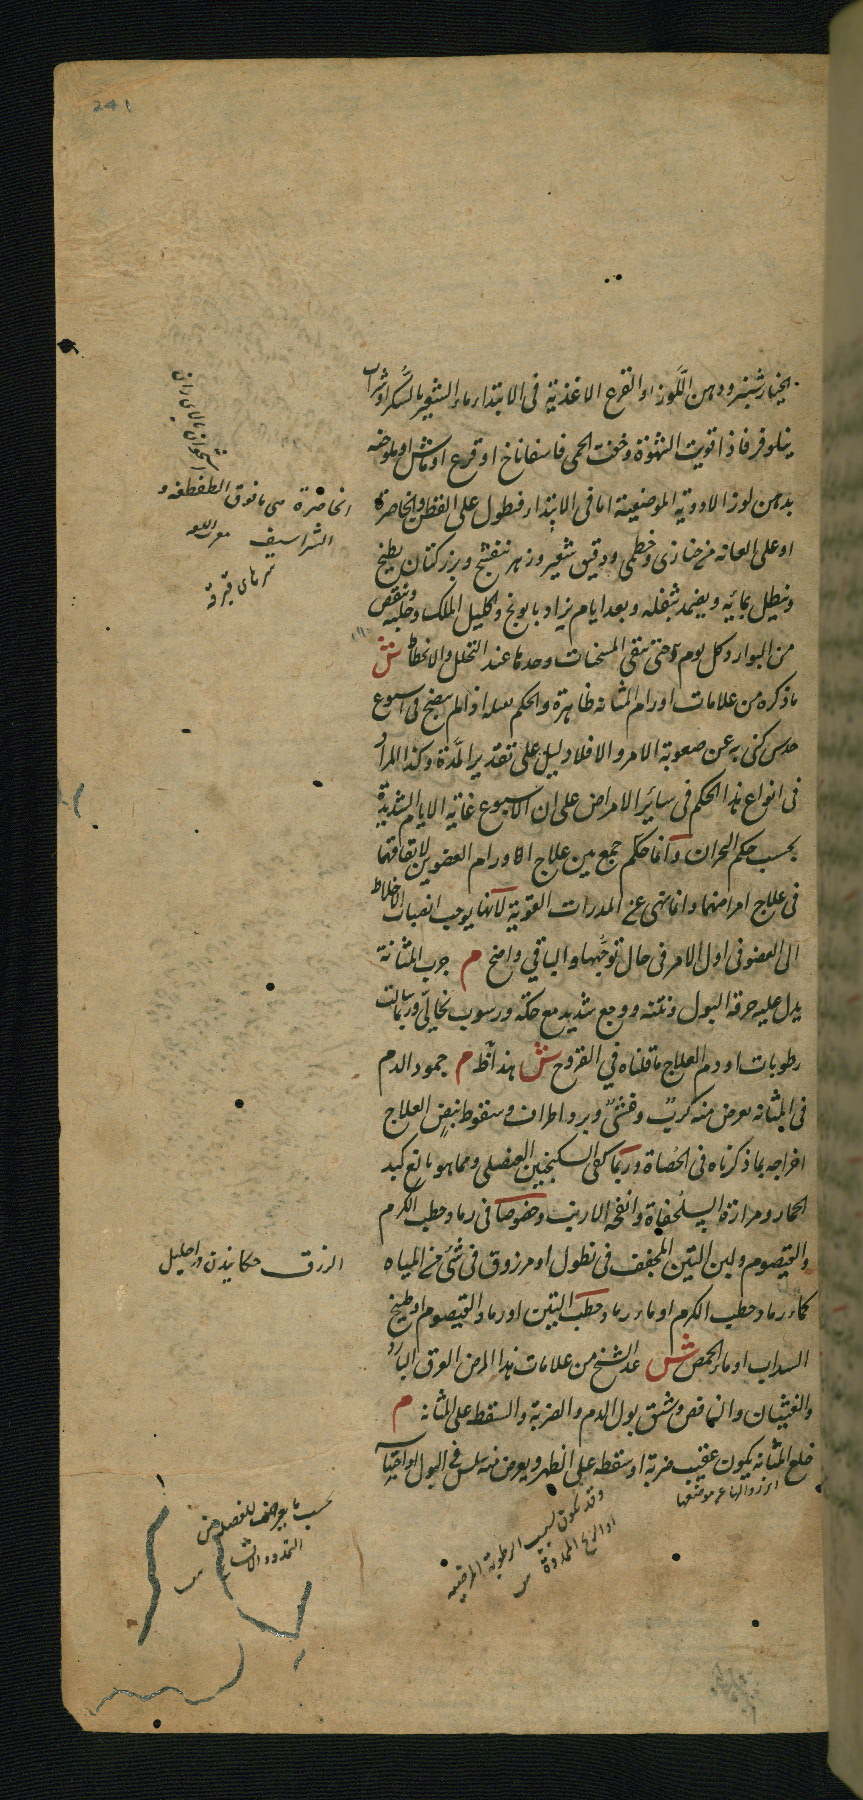 241
بخيار شنبر ودهن اللوز او القرع الاغذية فى الابتداء ماء الشعير بالسكر او شراب
نيلوفر فاذا قويت الشهوة وخفت الحمى فاسفاناخ او قرع او ماش او ملوخيه
بدهن لوز الادوية الموضعية اما فى الابتداء فنطول على القطن والخاصرة
او على العانه من خبازى وخطمى ودقيق شعير وزهر بنفسج وبزر كتان يطبخ
وينطل بمائه ويضمد بثفله وبعد ايام يزاد بابونج واكليل الملك وحلبه وينقص
من البوارد كل يوم حتى تبقى المسخنات وحدها عند التحلل والانحطاط ش
ما ذكره من علامات اورام المثانه ظاهرة والحكم بقتله اذا لم ينضج فى اسبوع
حدس كنى به عن صعوبة الامر والا فلا دليل على تقدير المدة وكذا المراد
فى انواع هذا الحكم فى سائر الامراض على ان الاسبوع غاية الايام الشديدة
بحسب حكم البحران وانما حكم جمع بين علاج الاورام العضوين لاتفاقهما
فى علاج امراضهما وانما نهى عن المدرات القوية لانها يوجب انصباب الاخلاط
الى العضو فى اول الامر فى حال توجهها والباقي واضح م جرب المثانة
يدل عليه حرقة البول ونتنه ووجع شديد مع حكة ورسوب نخالى وربما سالت
رطوبات او دم العلاج ما قلناه في القروح ش هذا ظ م جمود الدم
فى المثانه يعرض منه كرب وغشى وبرد اطراف وسقوط نبض العلاج
اخراجه بما ذكرناه فى الحصاة وربما كفى السكنجبين العنصلى ومما هو نافع كبد
الحمار ومرارة السلحفاة وانفحة الارنب وخصوصا فى رماد حطب الكرم
والقيصوم ولبن التين المجفف فى نطول او مرزوق فى شئ من المياه
كماء رماد حطب الكرم او ماء رماد حطب التين او رماد القيصوم او طبيخ
السداب او ماء الحمص ش عد الشيخ من علامات هذا المرض العرق البارد
والغثيان والنافض وسبق بول الدم والضربة والسقطة على المثانه م
خلع المثانه يكون عقيب ضربة او سقطة على الظهر ويعرض منه سلس في البول او احتباس
الخاصرة هى ما فوق الطفطفة و
الشراسيف
الزرق حكانيدن در احليل
اى زوالها عن موضعها
وقد تكون لسبب الرطوبة المرخية
او الريح الممددة
بحسب ما يعرض للعضل من
التمدد والا